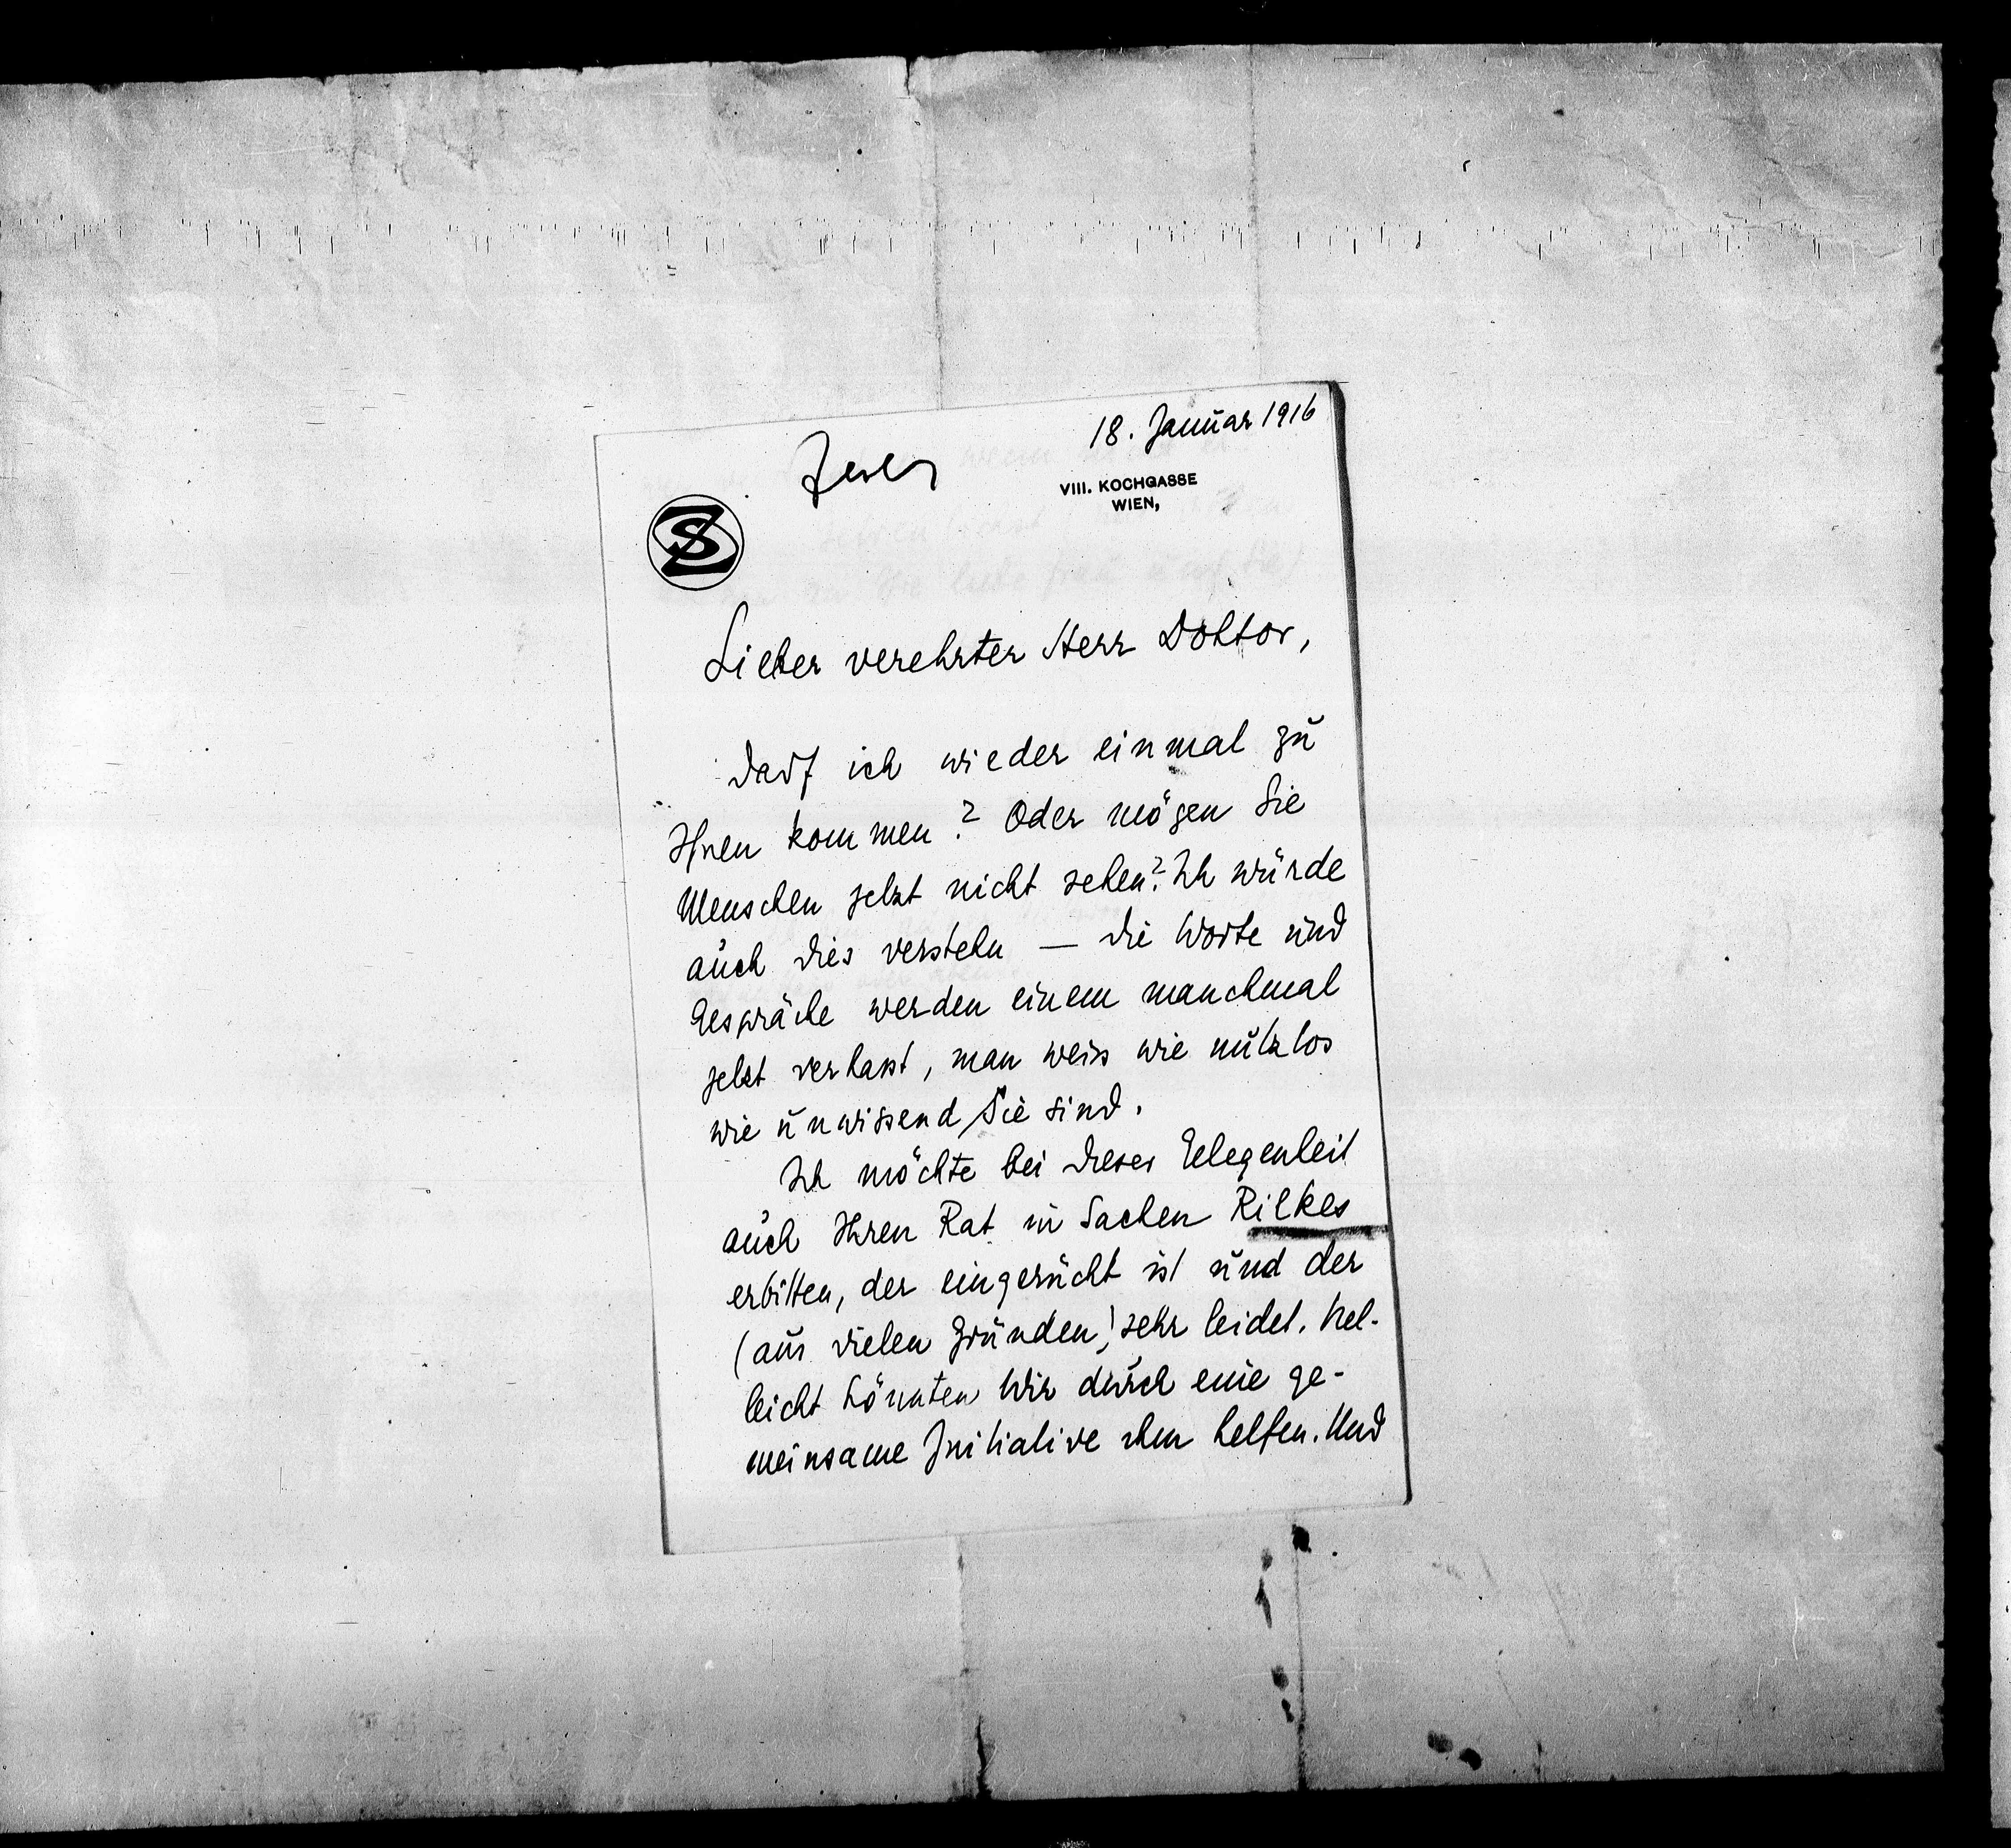 18. Januar 1916
VIII. KOCHGASSE
WIEN,
SZ
Lieber verehrter Herr Doktor,
darf ich wieder einmal zu
Ihnen kommen? Oder mögen Sie
Menschen jetzt nicht sehen? Ich würde
auch dies verstehn — die Worte und
Gespräche werden einem manchmal
jetzt verhasst, man weiss wie nutzlos
wie unwissend Sie sind.
Ich möchte bei dieser Gelegenheit
auch Ihren Rat in Sachen Rilkes
erbitten, der eingerückt ist und der
(aus vielen Gründen) sehr leidet. Viel-
leicht könnten wir durch eine ge-
meinsame Initiative ihm helfen. Und